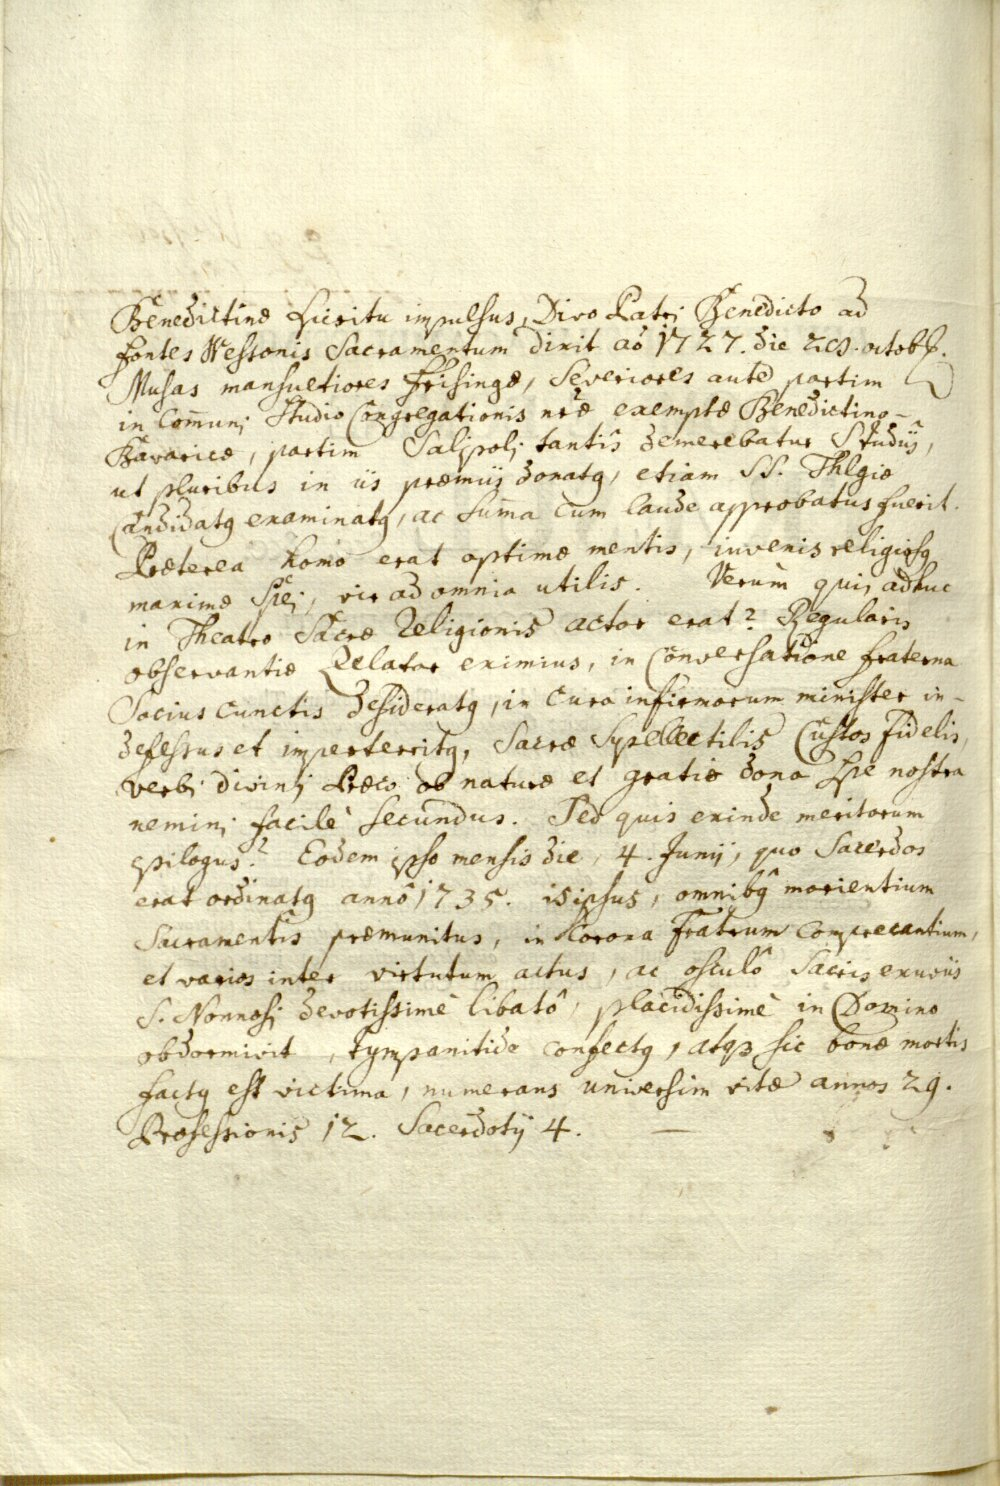 Benedictinæ Spiritu impulsus, Divo Patri Benedicto ad
fontes Wessonis Sacramentum dixit aõ 1727. die 28. octobr.
Musas mansuetiores Frisingæ, Severiores autē partim
in Com̃uni Studio Congregationis nr̃æ exemptæ Benedictino-
Bavaricæ, partim Salispoli tantis demerebatur Studiis,
ut pluribus in iis præmiis donatq, etiam SS. Thlgiæ
Candidatq examinatq, ac sum̃a cum laude approbatus fuerit.
Præterea homo erat optimæ mentis, iuvenis religiosq
maximæ Spei, vir ad omnia utilis. Verùm quis adhuc
in Theatro Sacræ Religionis actor erat? Regularis
observantiæ Zelator eximius, in Conversatione fraterna
Socius cunctis desideratq, in cura infirmorum minister in-
defessus et imperterritq, Sacræ Supellectilis Custos fidelis,
verbi divini Præco ob naturæ et gratiæ dona spe nostra
nemini facilè secundus. Sed quis exinde meritorum
epilogus? Eodem ipso mensis die, 4. Junij, quo Sacerdos
erat ordinatq annô 1735. is ipsus, omnibq morientium
Sacramentis præmunitus, in Corona Fratrum comprecantium,
et varios inter virtutum actus, ac osculô Sacris exuviis
S. Nonnosi devotissimè libatô, placidissimè in Domino
obdormivit, tympanitide confectq, atqꝫ sic bonæ mortis
factq est victima, numerans universim vitæ annos 29.
Professionis 12. Sacerdotij 4. —